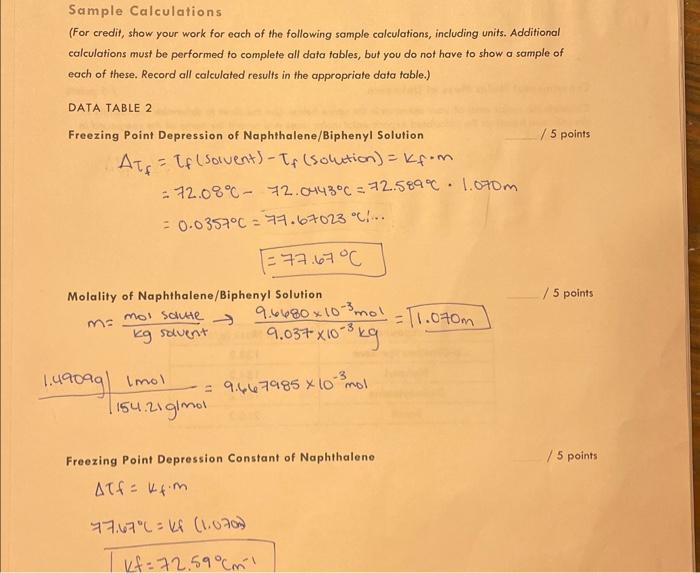 Sample Calculations
(For credit, show your work for each of the following sample calculations, including units. Additional
calculations must be performed to complete all data tables, but you do not have to show a sample of
each of these. Record all calculated results in the appropriate data table.)
DATA TABLE 2
Freezing Point Depression of Naphthalene/Biphenyl Solution / 5 points
ΔTf = Tf (Solvent) - Tf (Solution) = Kf · m
= 72.08°C - 72.0443°C = 72.589°C · 1.070m
= 0.0357°C = 77.67023 °C
= 77.67 °C
Molality of Naphthalene/Biphenyl Solution / 5 points
m = mol solute / kg solvent → 9.6680 x 10⁻³ mol / 9.037 x 10⁻³ kg = 1.070m
1.4909g | 1mol / 154.21 g/mol = 9.667985 x 10⁻³ mol
Freezing Point Depression Constant of Naphthalene / 5 points
ΔTf = Kf · m
77.67°C = Kf (1.070m)
Kf = 72.59°Cm⁻¹